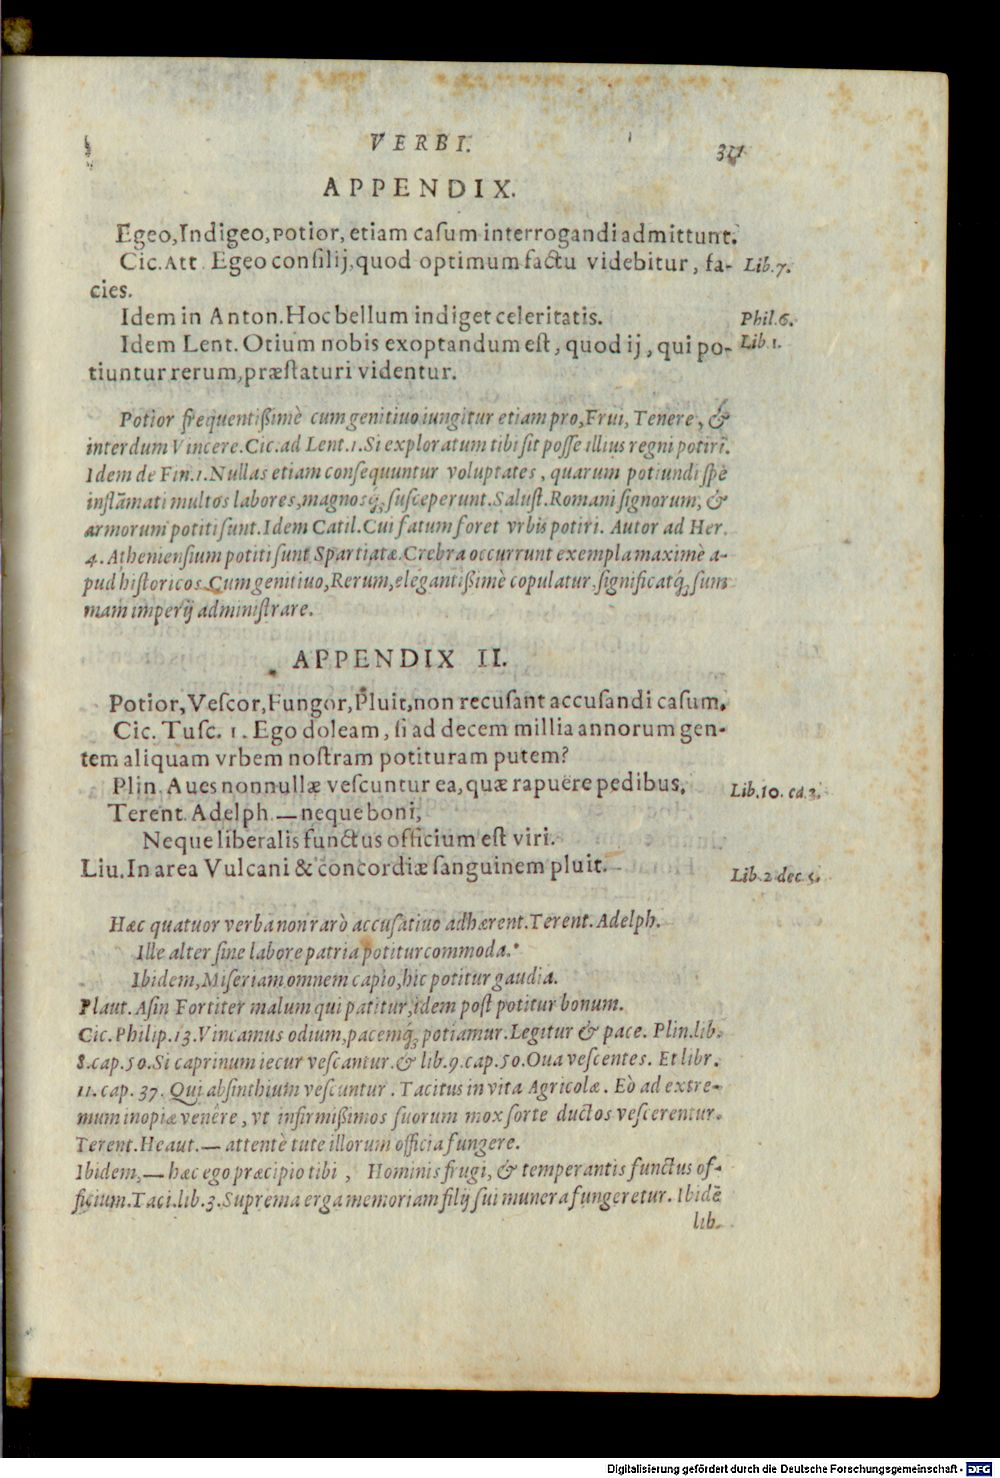 VERBI.
APPENDIX.
Egeo, Indigeo, potior, etiam casum interrogandi admittunt.
Cic. Att. Egeo consilij, quod optimum factu videbitur, fa- Lib. 7.
cies.
Idem in Anton. Hoc bellum indiget celeritatis. Phil. 6.
Idem Lent. Otium nobis exoptandum est, quod ij, qui po- Lib. 1.
tiuntur rerum, præstaturi videntur.
Potior frequentißimè cum genitiuo iungitur etiam pro, Frui, Tenere, &
interdum Vincere. Cic. ad Lent. 1. Si exploratum tibi sit posse illius regni potiri.
Idem de Fin. 1. Nullas etiam consequuntur voluptates, quarum potiundi spe
inflãmati multos labores, magnosq́; susceperunt. Salust. Romani signorum, &
armorum potiti sunt. Idem Catil. Cui fatum foret vrbis potiri. Autor ad Her.
4. Atheniensium potiti sunt Spartiatæ. Crebra occurrunt exempla maximè a-
pud historicos. Cum genitiuo, Rerum, elegantißimè copulatur. significatq́; sum
mam imperij administrare.
APPENDIX II.
Potior, Vescor, Fungor, Pluit, non recusant accusandi casum.
Cic. Tusc. 1. Ego doleam, si ad decem millia annorum gen-
tem aliquam vrbem nostram potituram putem?
Plin. Aues nonnullæ vescuntur ea, quæ rapuere pedibus. Lib. 10. ca. 3.
Terent. Adelph. — neque boni,
Neque liberalis functus officium est viri.
Liu. In area Vulcani & concordiæ sanguinem pluit. Lib. 2 dec
Hæc quatuor verba non rarò accusatiuo adhærent. Terent. Adelph.
Ille alter sine labore patria potitur commoda.
Ibidem, Miseriam omnem capio, hic potitur gaudia.
Plaut. Asin Fortiter malum qui patitur, idem post potitur bonum.
Cic. Philip. 13. Vincamus odium, pacemq́; potiamur. Legitur & pace. Plin. lib.
8. cap. 50. Si caprinum iecur vescantur. & lib. 9. cap. 50. Oua vescentes. Et libr.
11. cap. 37. Qui absinthium vescuntur. Tacitus in vita Agricolæ. Eò ad extre-
mum inopiæ venêre, vt infirmißimos suorum mox sorte ductos vescerentur.
Terent. Heaut. — attentè tute illorum officia fungere.
Ibidem, — hæc ego præcipio tibi, Hominis frugi, & temperantis functus of-
ficium. Taci. lib. 3. Suprema erga memoriam filij sui munera fungeretur. Ibidẽ
lib.
Digitalisierung gefördert durch die Deutsche Forschungsgemeinschaft - DFG